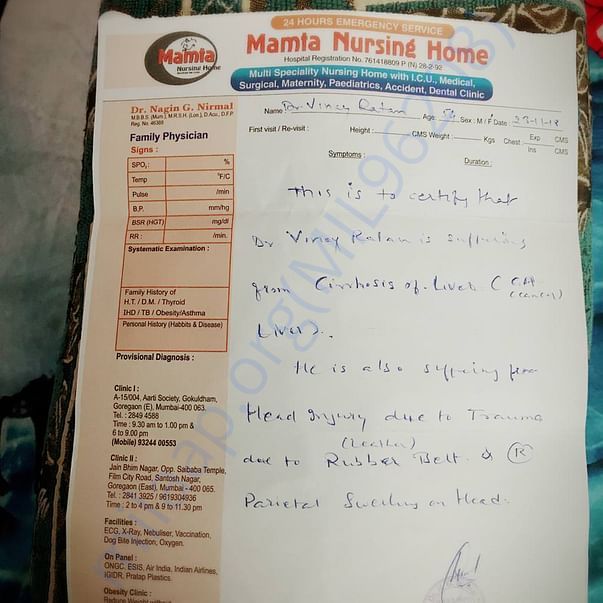 24 HOURS EMERGENCY SERVICE
Mamta Nursing Home
Mamta
Nursing Home
Hospital Registration No. 761418809 P (N) 28-2-92
Multi Speciality Nursing Home with I.C.U., Medical,
Surgical, Maternity, Paediatrics, Accident, Dental Clinic
Dr. Nagin G. Nirmal
M.B.B.S (Mum.), M.R.S.H. (Lon.), D.Acu., D.F.P
Reg. No. 46368
Family Physician
Name: Dr. Vinoy Ratan Age: Sex: M / F Date: 23-11-18
First visit / Re-visit : Height: CMS Weight: Kgs Chest: Exp CMS
Ins CMS
Symptoms : Duration :
Signs :
SPO2: %
Temp °F/C
Pulse /min
B.P. mm/hg
BSR (HGT) mg/dl
RR : /min.
Systematic Examination :
Family History of
H.T. / D.M. / Thyroid
IHD / TB / Obesity/Asthma
Personal History (Habbits & Disease)
Provisional Diagnosis :
Clinic I :
A-15/004, Aarti Society, Gokuldham,
Goregaon (E), Mumbai-400 063.
Tel.: 2849 4588
Time : 9.30 am to 1.00 pm &
6 to 9.00 pm
(Mobile) 93244 00553
Clinic II :
Jain Bhim Nagar, Opp. Saibaba Temple,
Film City Road, Santosh Nagar,
Goregaon (East), Mumbai - 400 065.
Tel.: 2841 3925 / 9619304936
Time : 2 to 4 pm & 9 to 11.30 pm
Facilities :
ECG, X-Ray, Nebuliser, Vaccination,
Dog Bite Injection, Oxygen.
On Panel :
ONGC, ESIS, Air India, Indian Airlines,
IGIDR, Pratap Plastics.
Obesity Clinic :
Reduce Weight without
This is to certify that
Dr Vinoy Ratan is suffering
from Cirrhosis of Liver (CA
(cancer)
Liver).
He is also suffering from
Head injury due to Trauma
(Leather)
due to Rubber Belt. & (R)
Parietal Swelling on Head.